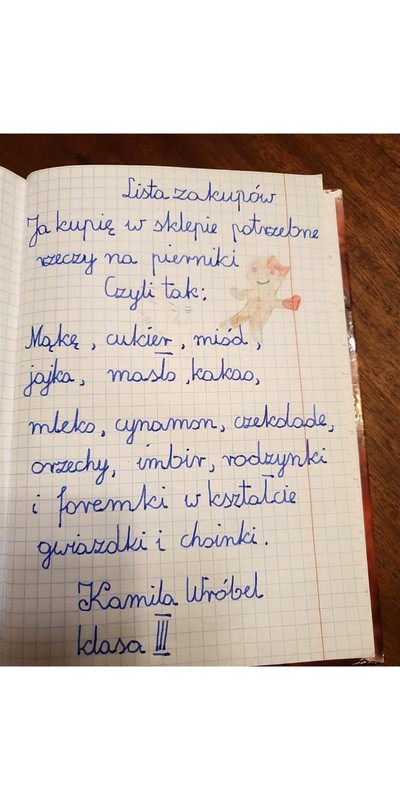 Lista zakupów
Ja kupię w sklepie potrzebne
rzeczy na pierniki
Czyli tak:
Mąkę, cukier, miód,
jajka, masło, kakao,
mleko, cynamon, czekoladę,
orzechy, imbir, rodzynki
i foremki w kształcie
gwiazdki i choinki.
Kamila Wróbel
klasa III